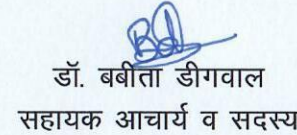 डॉ. बबीता डीगवाल
सहायक आचार्य व सदस्य